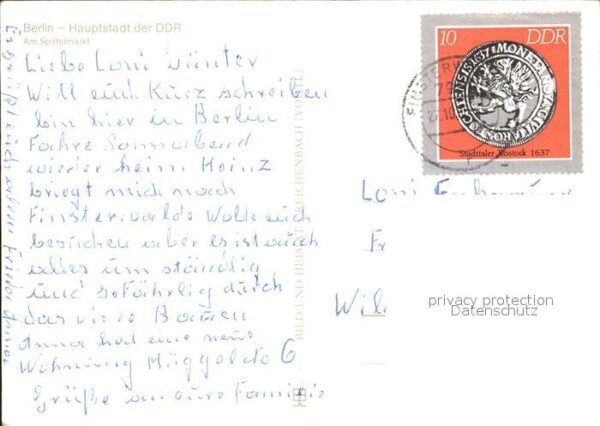 Berlin – Hauptstadt der DDR
Am Spittelmarkt
Liebe Loni Günter
Will euch Kurz schreiben
bin hier in Berlin
Fahre Sonnabend
wieder heim Heinz
bringt mich nach
Finsterwalde Wolde euch
besuchen aber es ist auch
alles um ständlig
und gefährlig durch
das viele Bauen
Anna had eine neue
Wohnung
Grüße an eure Familie
BILD UND HEIMAT REICHENBACH (VOGTL)
10 DDR
Stadttaler Rostock 1637
Loni
privacy protection
Datenschutz